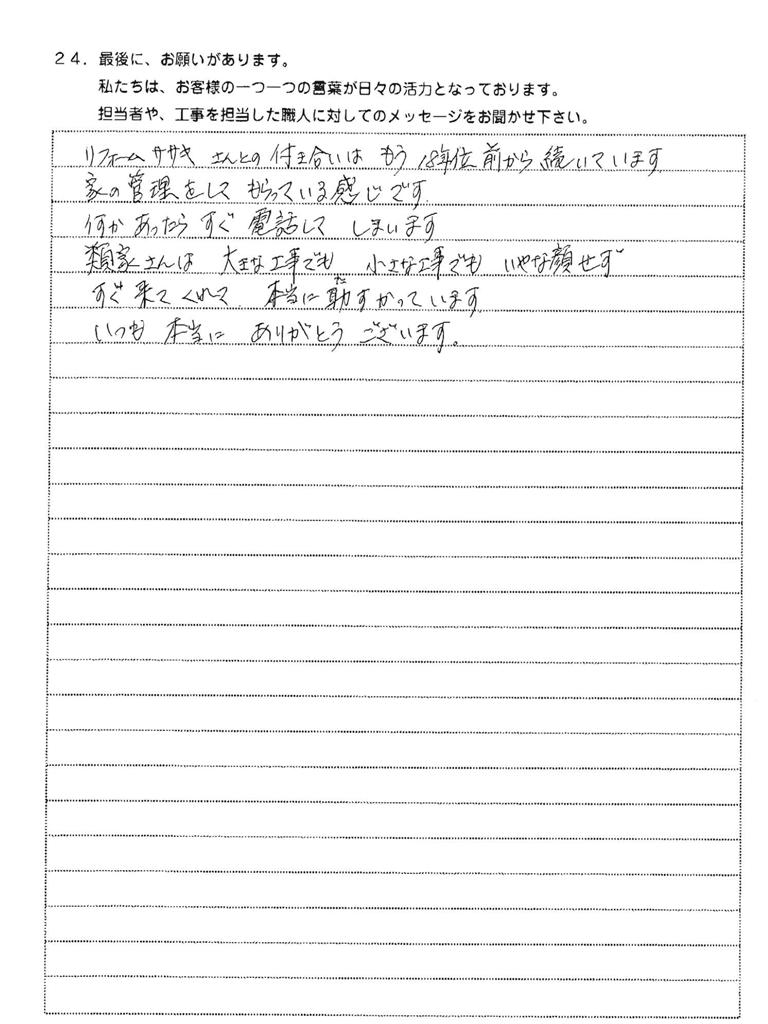 24. 最後に、お願いがあります。
私たちは、お客様の一つ一つの言葉が日々の活力となっております。
担当者や、工事を担当した職人に対してのメッセージをお聞かせ下さい。
リフォームササキ さんとの 付き合いは もう 18年位 前から 続いています
家の管理をして もらっている感じです.
何か あったら すぐ 電話して しまいます
類家さんは 大きな工事でも 小さな工事でも いやな顔せず
すぐ 来て くれて 本当に 助すかって います
いつも 本当に ありがとう ございます。